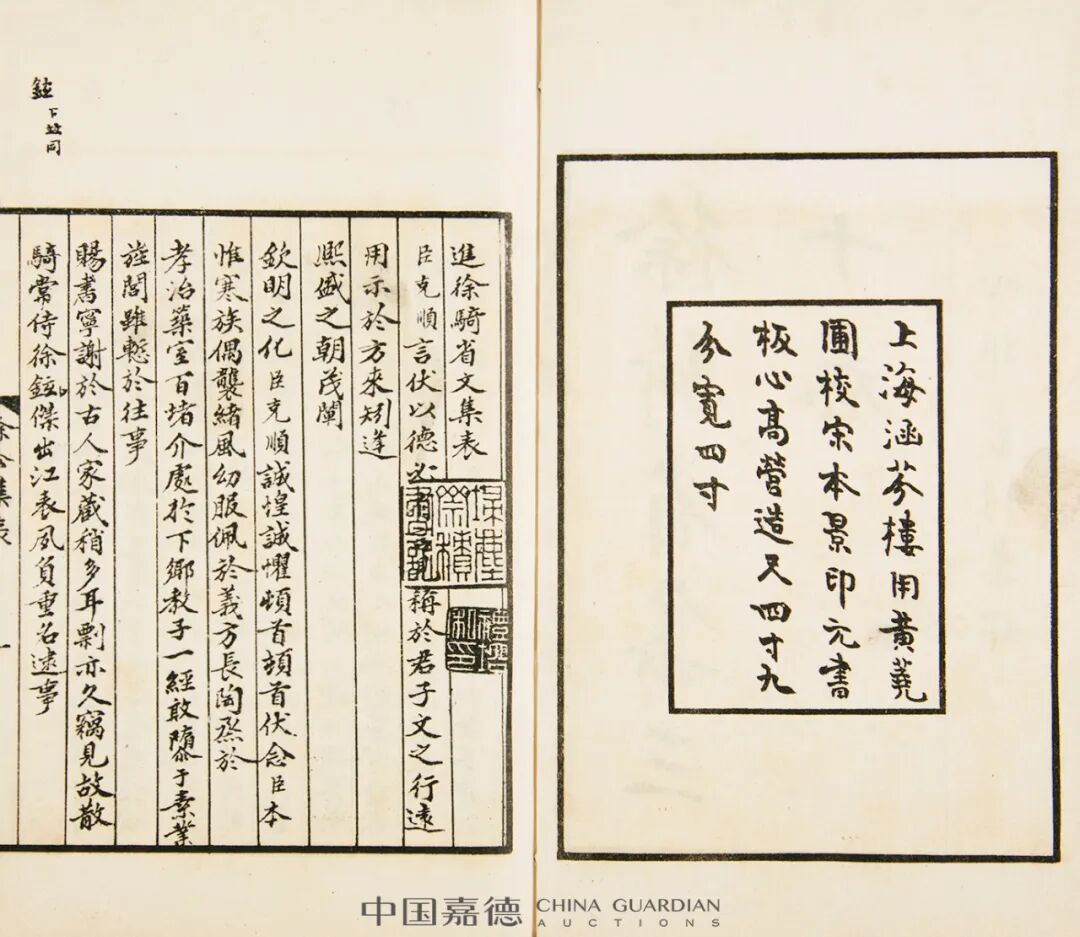 上海涵芬樓用黃蕘
圃校宋本景印元書
板心高營造尺四寸九
分寬四寸
進徐騎省文集表
臣克順言伏以德必稱於君子文之行遠
用示於方來矧逢
熙盛之朝茂闡
欽明之化臣克順誠惶誠懼頓首頓首伏念臣本
惟寒族偶襲緒風幼服佩於義方長陶烝於
孝治築室百堵介處於下鄉教子一經敢隳于素業
旌閭雖慙於往事
賜書寧謝於古人家藏稍多耳剽亦久竊見故散
騎常侍徐鉉傑出江表夙負重名逮事
埽塵齋積書記
禮培私印
鉉
下同
集表
一
中国嘉德 CHINA GUARDIAN
AUCTIONS